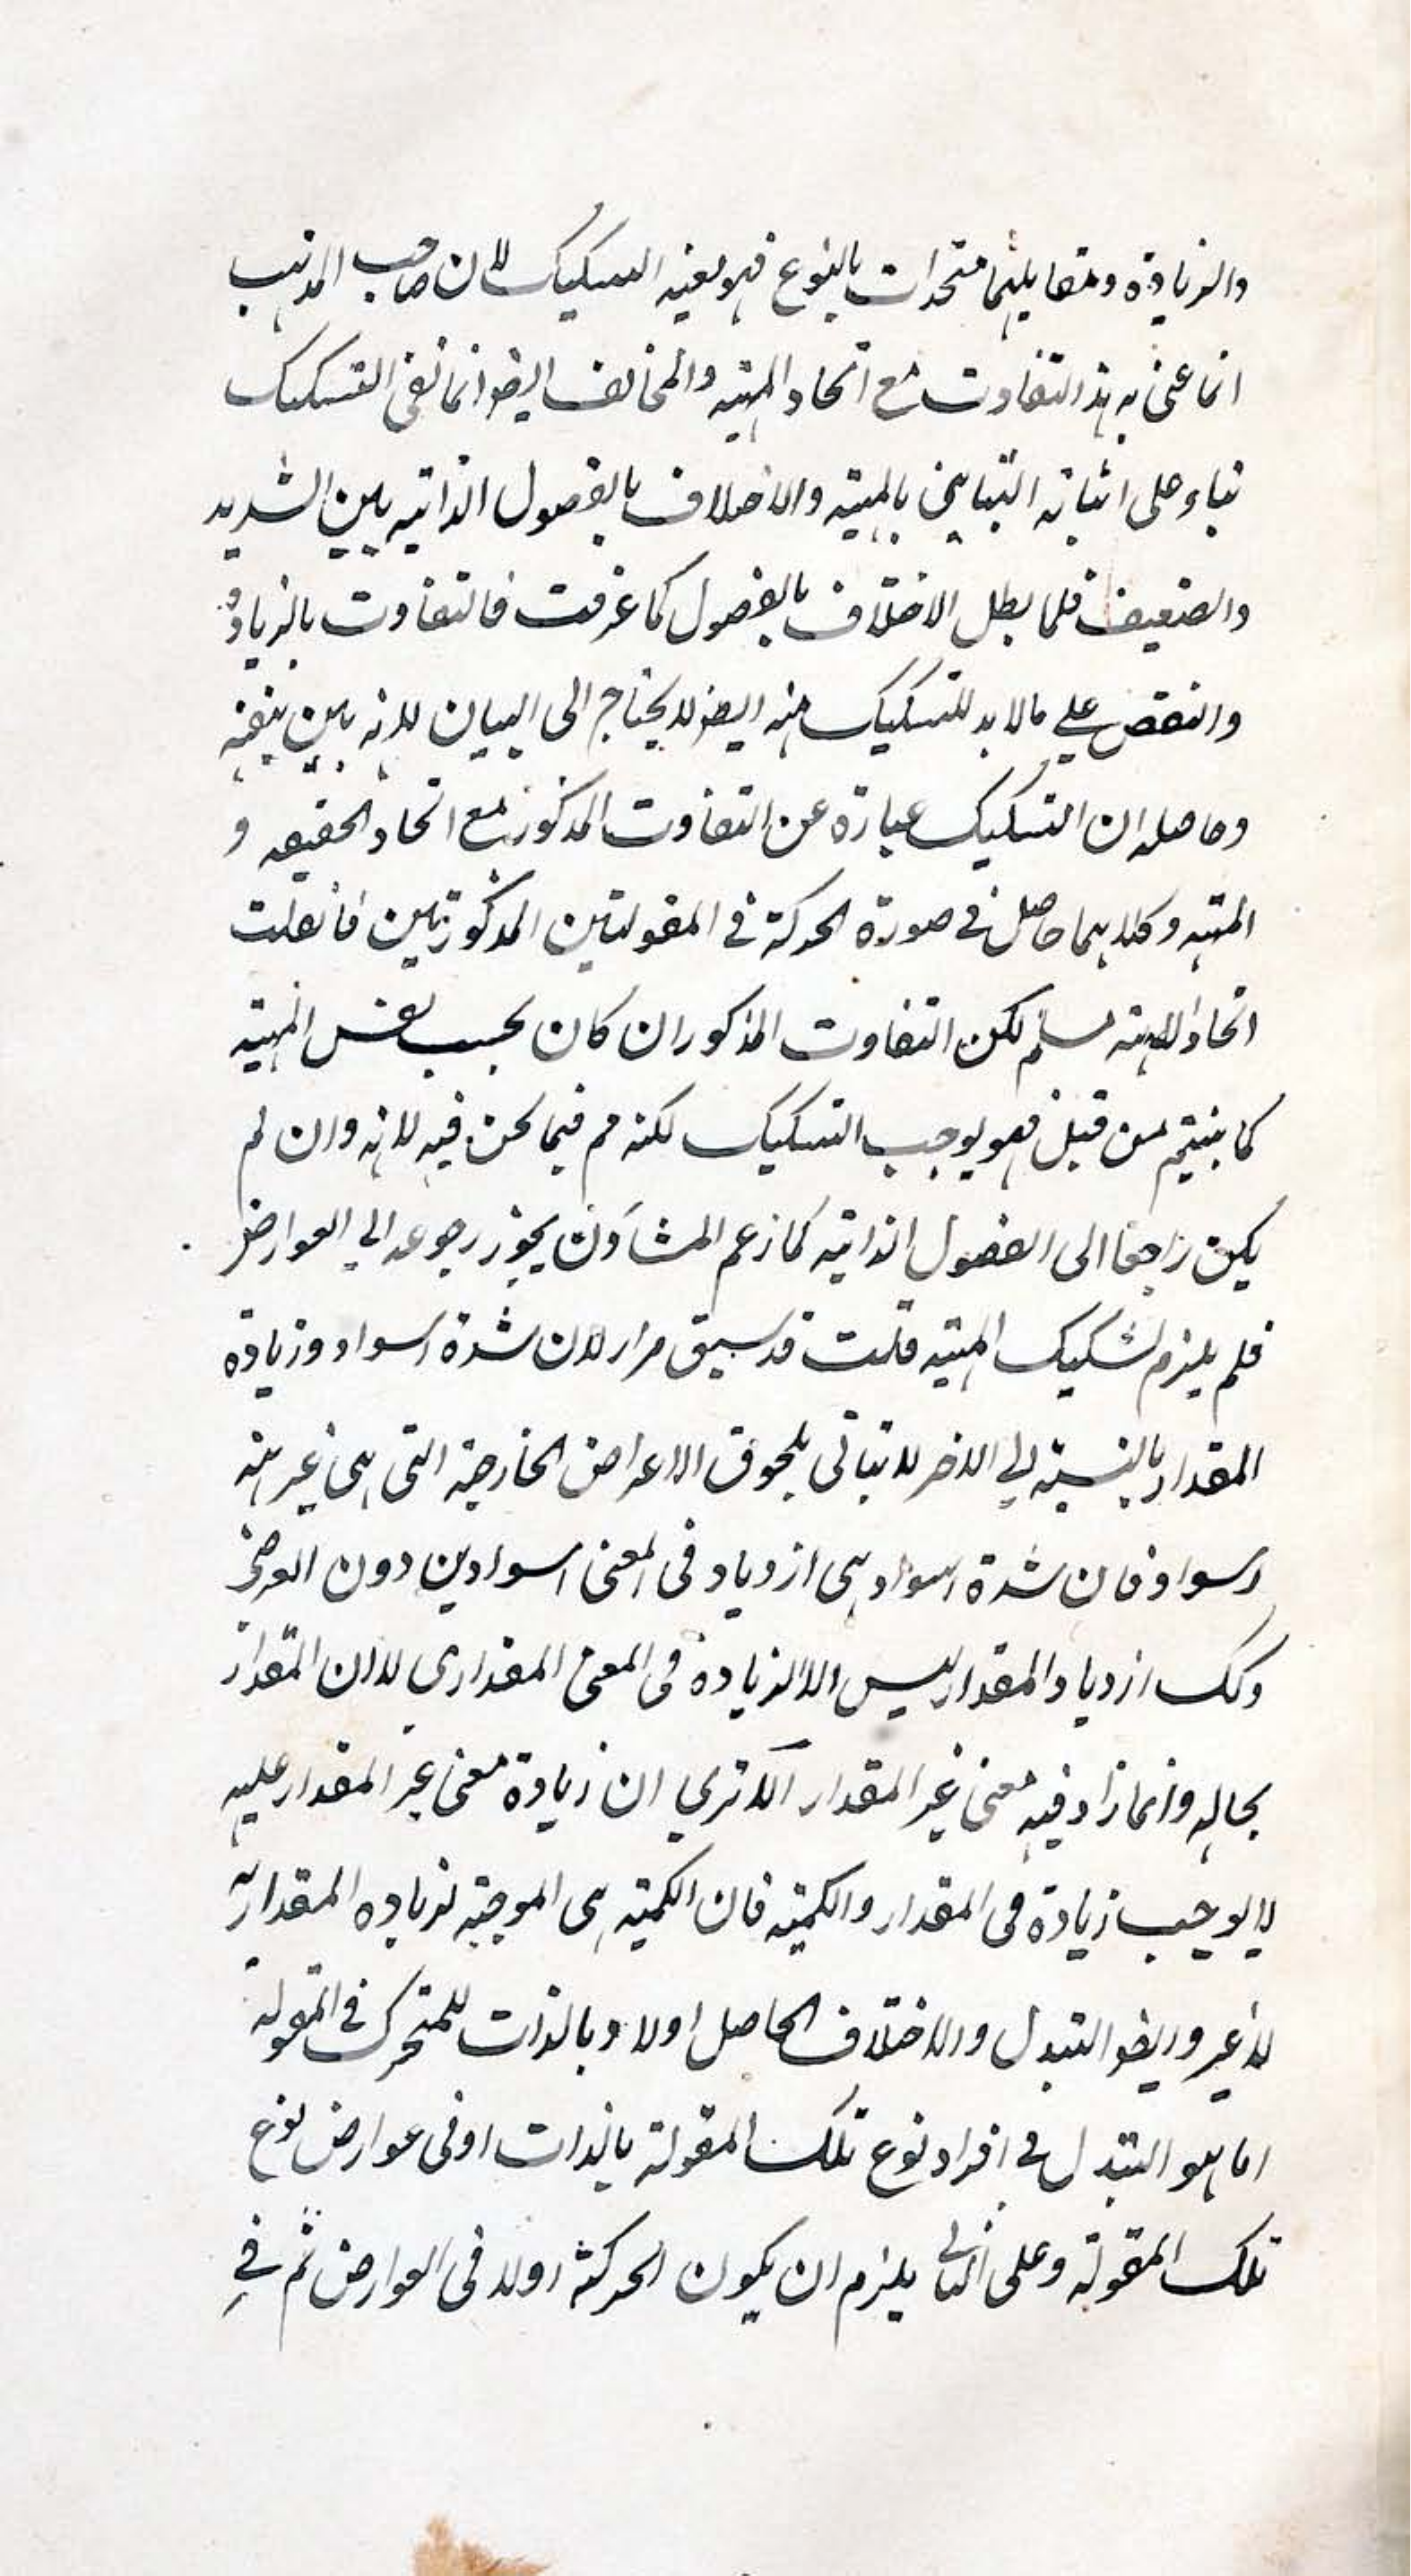 والزيادة ومقابليهما متحدات بالنوع فهو بعينه التشكيك لان صاحب المذهب
انما عنى به هذا التفاوت مع اتحاد المهية والمخالف ايضا انما نفى التشكيك
بناء على اثباته التباين بالمهية والاختلاف بالفصول الذاتية بين الشديد
والضعيف فلما بطل الاختلاف بالفصول كما عرفت فالتفاوت بالزيادة
والنقص على مالابد للتشكيك منه ايضا لا يحتاج الى البيان لانه بين بنفسه
وحاصله ان التشكيك عبارة عن التفاوت المذكور مع اتحاد الحقيقه و
المهية وكلاهما حاصل في صورة الحركة في المقولتين المذكورتين فان قلت
اتحاد المهية مسلم لكن التفاوت المذكور ان كان بحسب نفس المهية
كما بينتم من قبل فهو يوجب التشكيك لكنه مم فيما نحن فيه لانه وان لم
يكن راجعا الى الفصول الذاتية كما زعم المشاؤن يجوز رجوعه الي العوارض
فلم يلزم تشكيك المهية قلت قد سبق مرارا ان شدة السواد وزيادة
المقدار بالنسبة الي الاخر لا يتاتى بلحوق الاعراض الخارجية التى هى غير
السواد فان شدة السواد هى ازدياد فى المعنى السوادين دون العرضى
وكك ازدياد المقدار ليس الا الزيادة فى المعنى المقداري لا ان المقدار
بحاله وانما زاد فيه معنى غير المقدار الا تري ان زيادة معنى غير المقدار عليه
لا يوجب زيادة فى المقدار والكمية فان الكمية هى الموجبة لزياده المقدارية
لا غير وايضا التبدل والاختلاف الحاصل اولا وبالذات للمتحرك في المقولة
اما هو التبدل في افراد نوع تلك المقولة بالذات او فى عوارض نوع
تلك المقولة وعلى الثاني يلزم ان يكون الحركة اولا فى العوارض ثم في